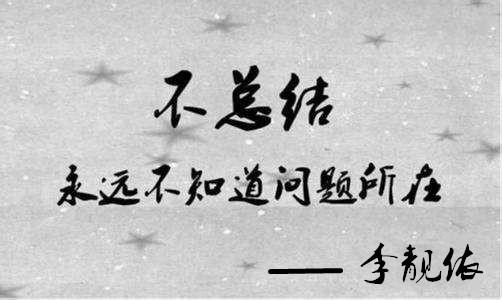 不总结
永远不知道问题所在
——李靓依